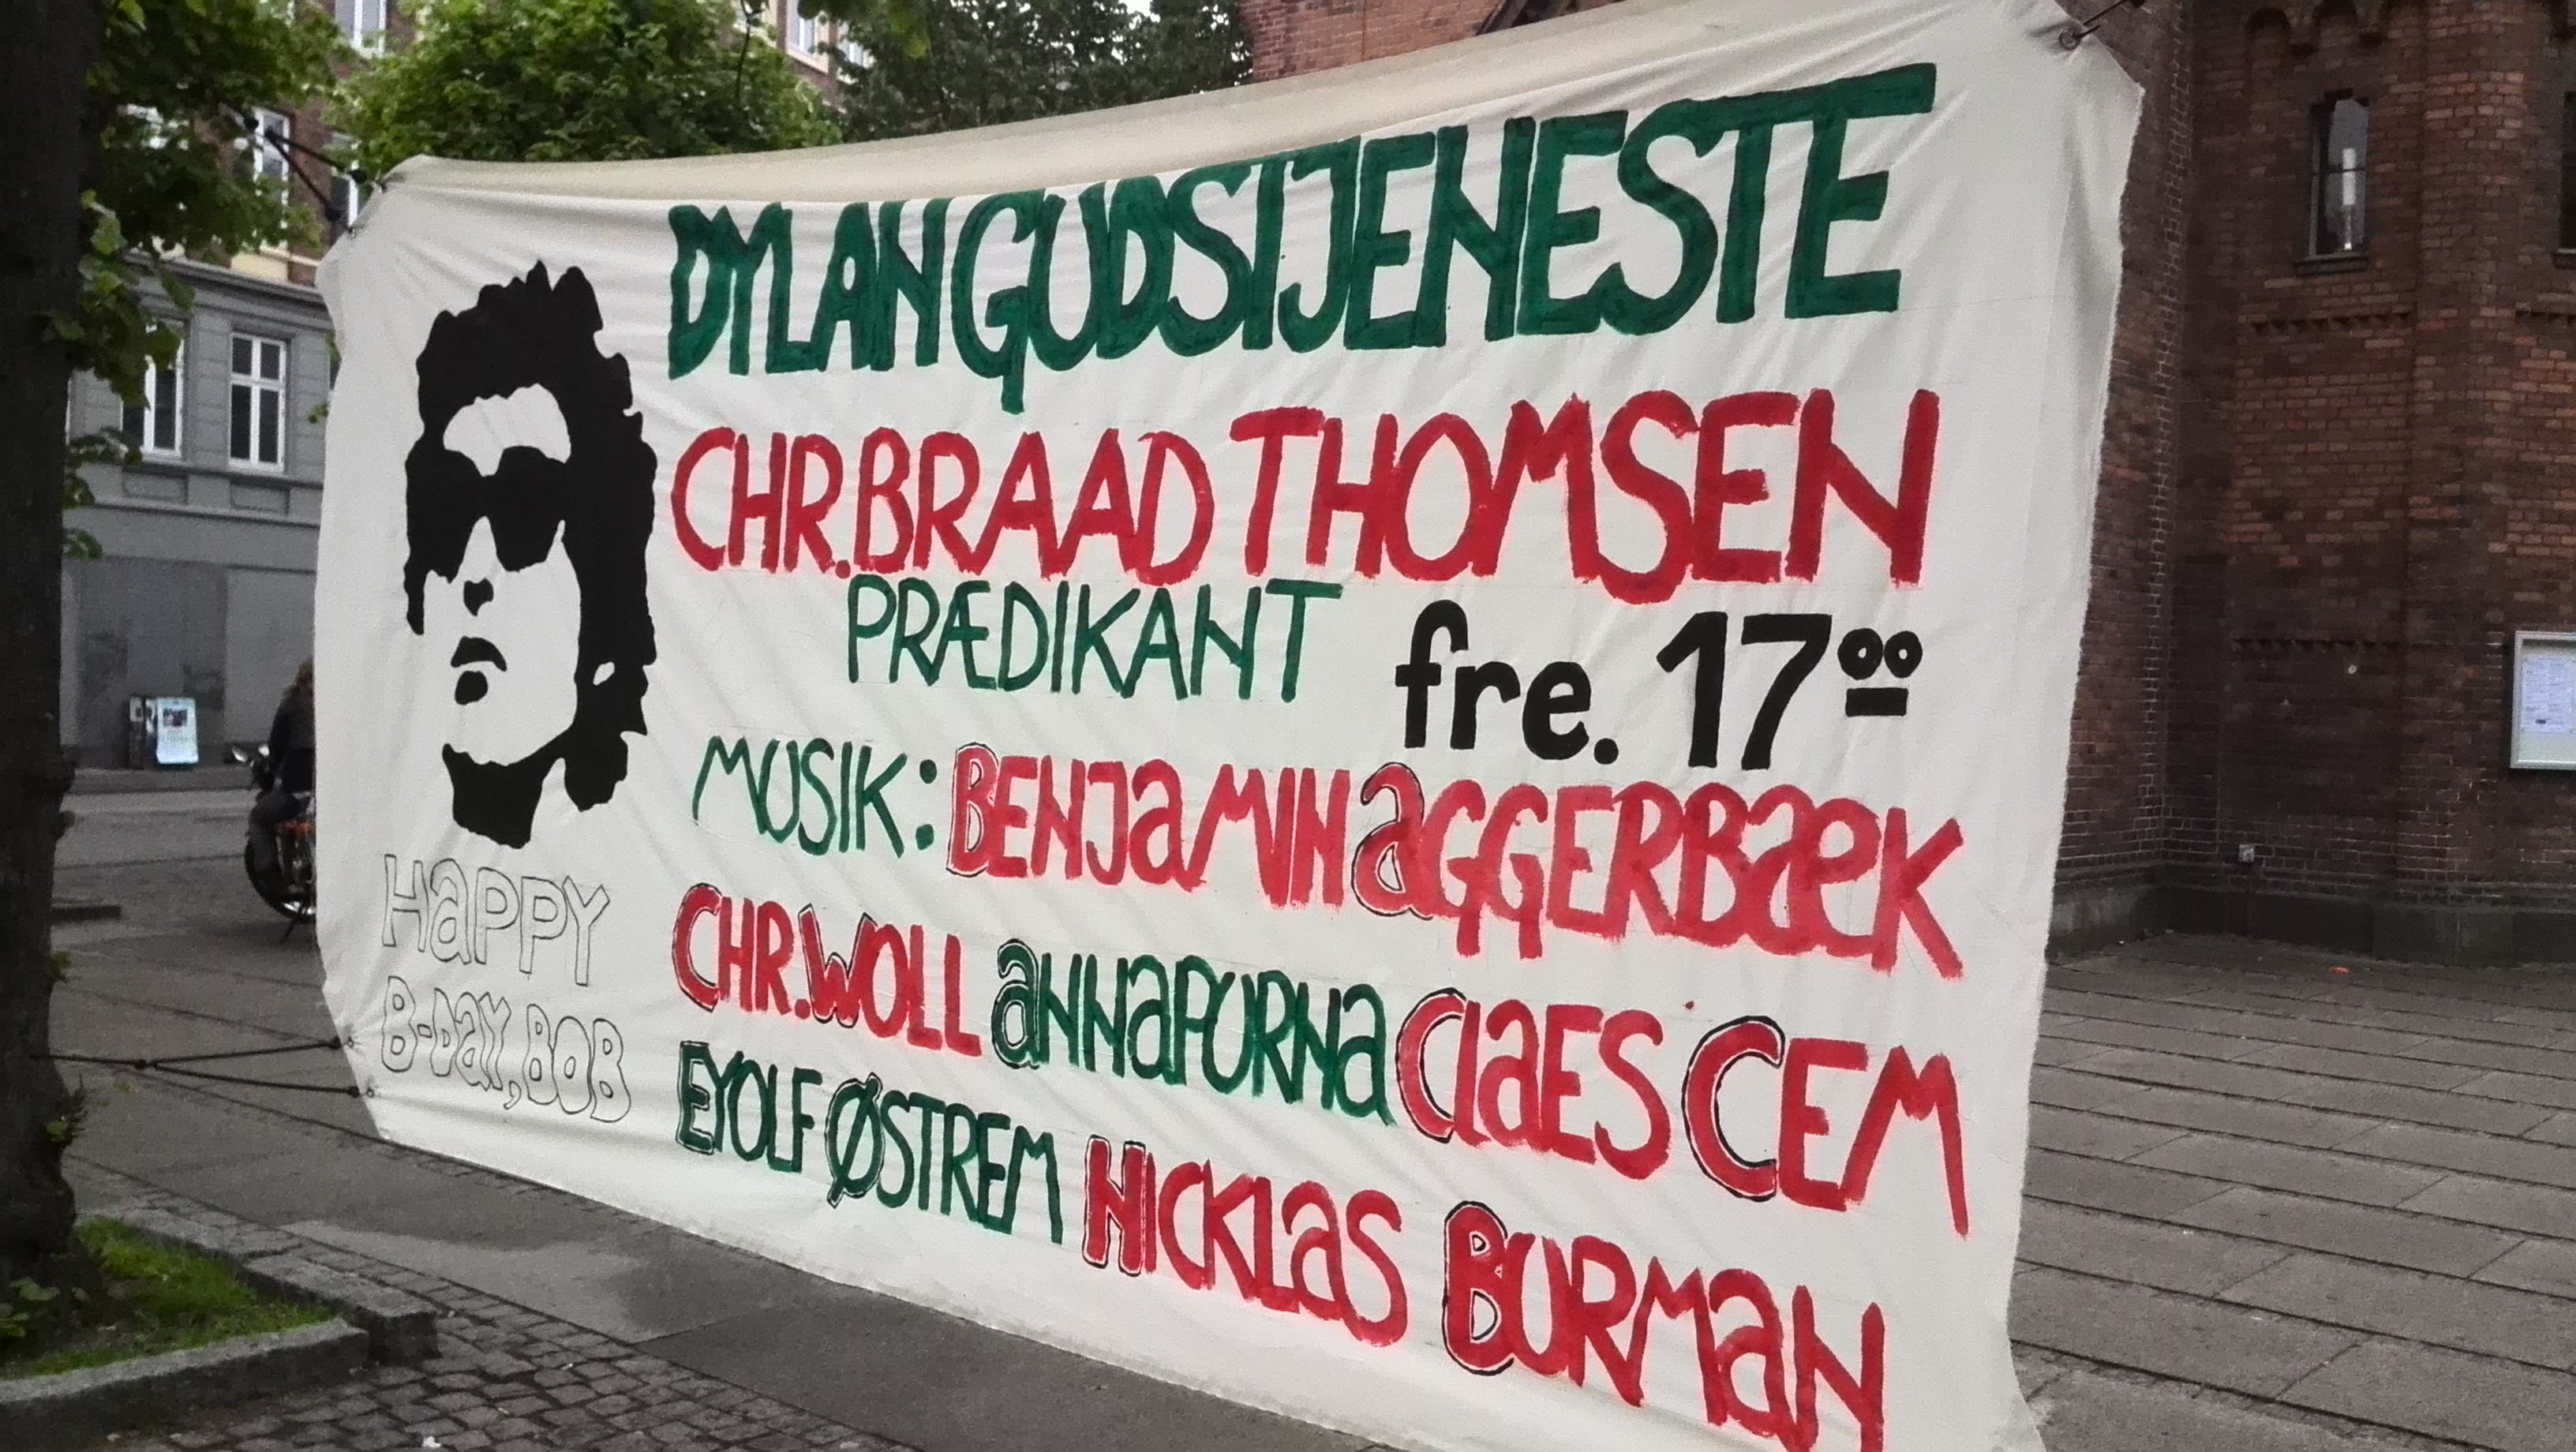 DYLANGUDSTJENESTE
CHR. BRAAD THOMSEN
PRÆDIKANT
fre. 17 00
MUSIK: BENJaMIN aGGERBaeK
CHR. WOLL aNNaPURNa ClaES CEM
EYOLF ØSTREM NICKLaS BURMaN
HaPPY
B-DaY, BOB